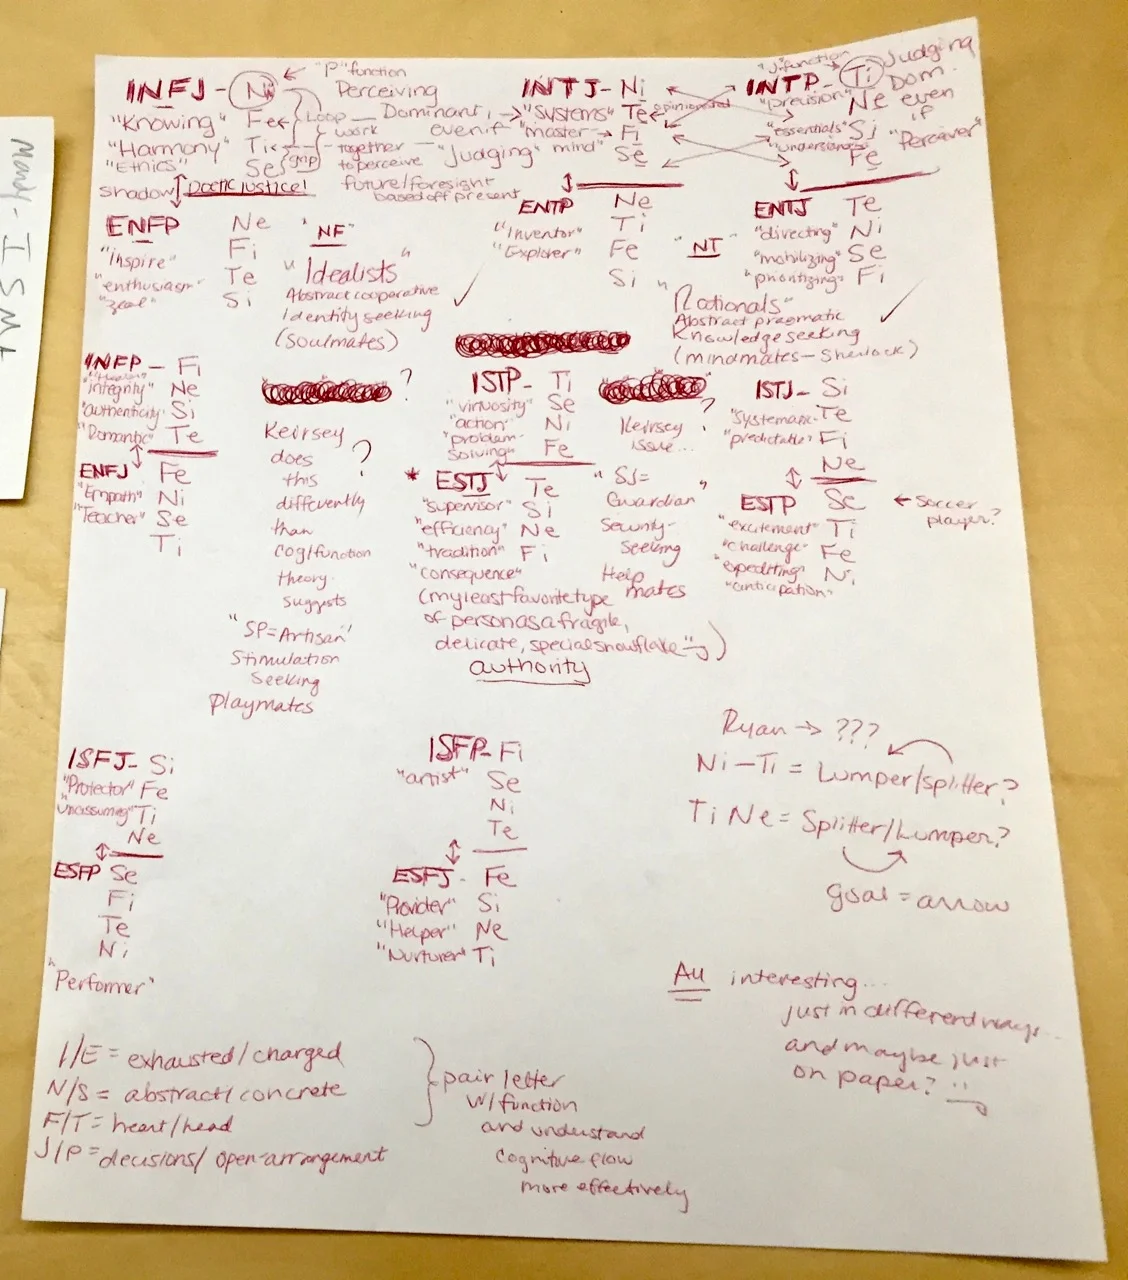 Mandy - ISM
INFJ - Ni
"P" function
Perceiving
"Knowing" Fe
"Harmony" Ti
"Ethics" Se
Loop
work
together
to perceive
future/foresight
based off present
shadow Poetic justice!
Dominant,
even if
"Judging"
ENFP Ne
"Inspire" Fi
"enthusiasm" Te
"zeal" Si
"NF"
"Idealists"
Abstract cooperative
Identity seeking
(Soulmates)
INTJ - Ni
"systems" Te opinionated
"master- Fi
mind" Se
ENTP Ne
"Inventor" Ti
"Explorer" Fe
Si
"NT"
INTP - Ti
"J" function
Judging
Dom.
even
if
"Perceiver"
"precision" Ne
"essentials" Si
Fe
ENTJ Te
"directing" Ni
"mobilizing" Se
"prioritizing" Fi
"Rationals"
Abstract pragmatic
Knowledge seeking
(mindmates - Sherlock)
INFP - Fi
"integrity" Ne
"authenticity" Si
"Romantic" Te
ENFJ Fe
"Empath" Ni
"Teacher" Se
Ti
?
Keirsey
does
this
differently
than
cog/function
theory
suggests
?
"SP=Artisan"
Stimulation
Seeking
playmates
ISTP - Ti
"virtuosity" Se
"action" Ni
"problem-
solving" Fe
* ESTJ Te
"supervisor" Si
"efficiency" Ne
"tradition" Fi
"consequence"
(my least favorite type
of person as a fragile,
delicate, special snowflake)
authority
Keirsey ?
issue...
"SJ=
Guardian"
Security-
seeking
Help mates
ISTJ - Si
"systematic" Te
"predictable" Fi
Ne
ESTP Se ← soccer
player?
"excitement" Ti
"challenge" Fe
"expediting" Ni
"anticipation"
ISFJ - Si
"Protector" Fe
"unassuming" Ti
Ne
ESFP Se
Fi
Te
Ni
"Performer"
ISFP - Fi
"artist" Se
Ni
Te
ESFJ - Fe
"Provider" Si
"Helper" Ne
"Nurturer" Ti
Ryan → ???
Ni - Ti = Lumper/splitter?
Ti Ne = Splitter/Lumper?
goal = arrow
All interesting...
just in different ways...
and maybe just
on paper?
I/E = exhausted/charged
N/S = abstract/concrete
F/T = heart/head
J/P = decisions/open-arrangement
pair letter
w/ function
and understand
cognitive flow
more effectively